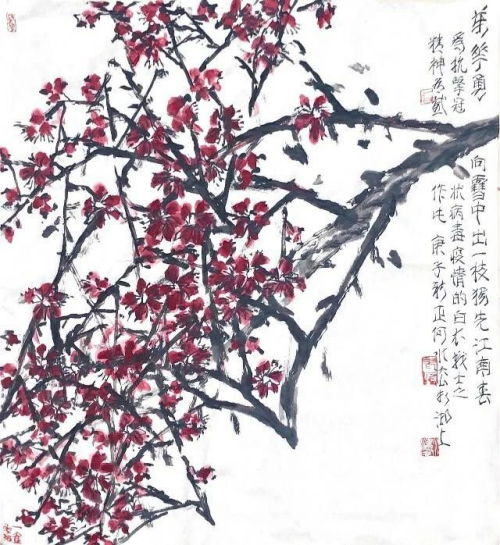 華勇向雪中出一枝獨先江南春
為抗擊冠狀病毒疫情的白衣戰士之
精神 作 庚子新正何水法於湖上